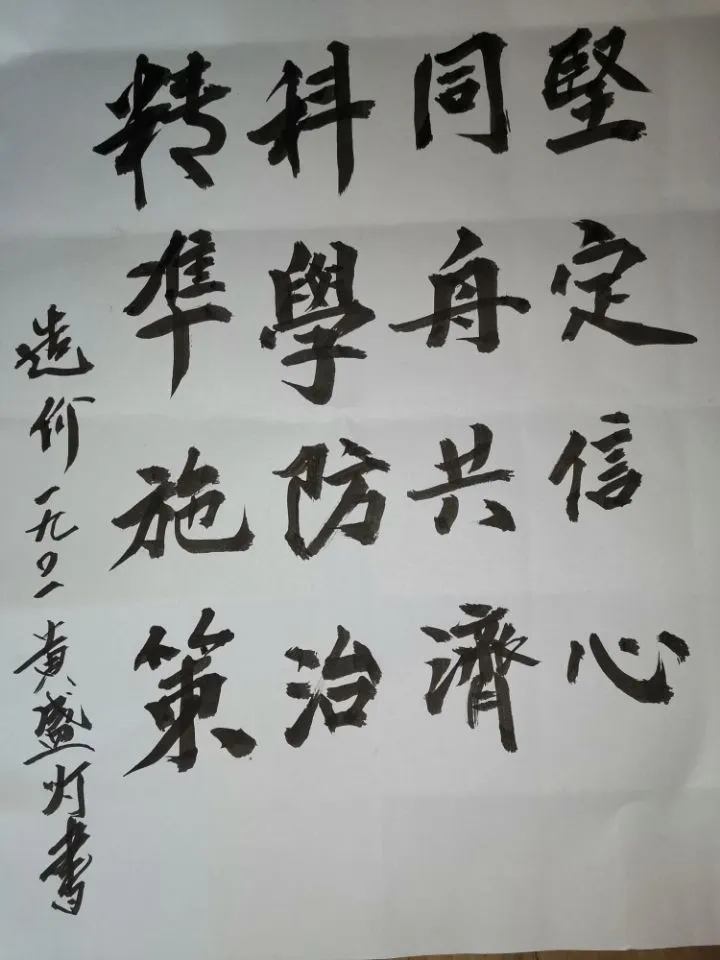 堅定信心
同舟共濟
科學防治
精準施策
造价一九0一黄盛灯書